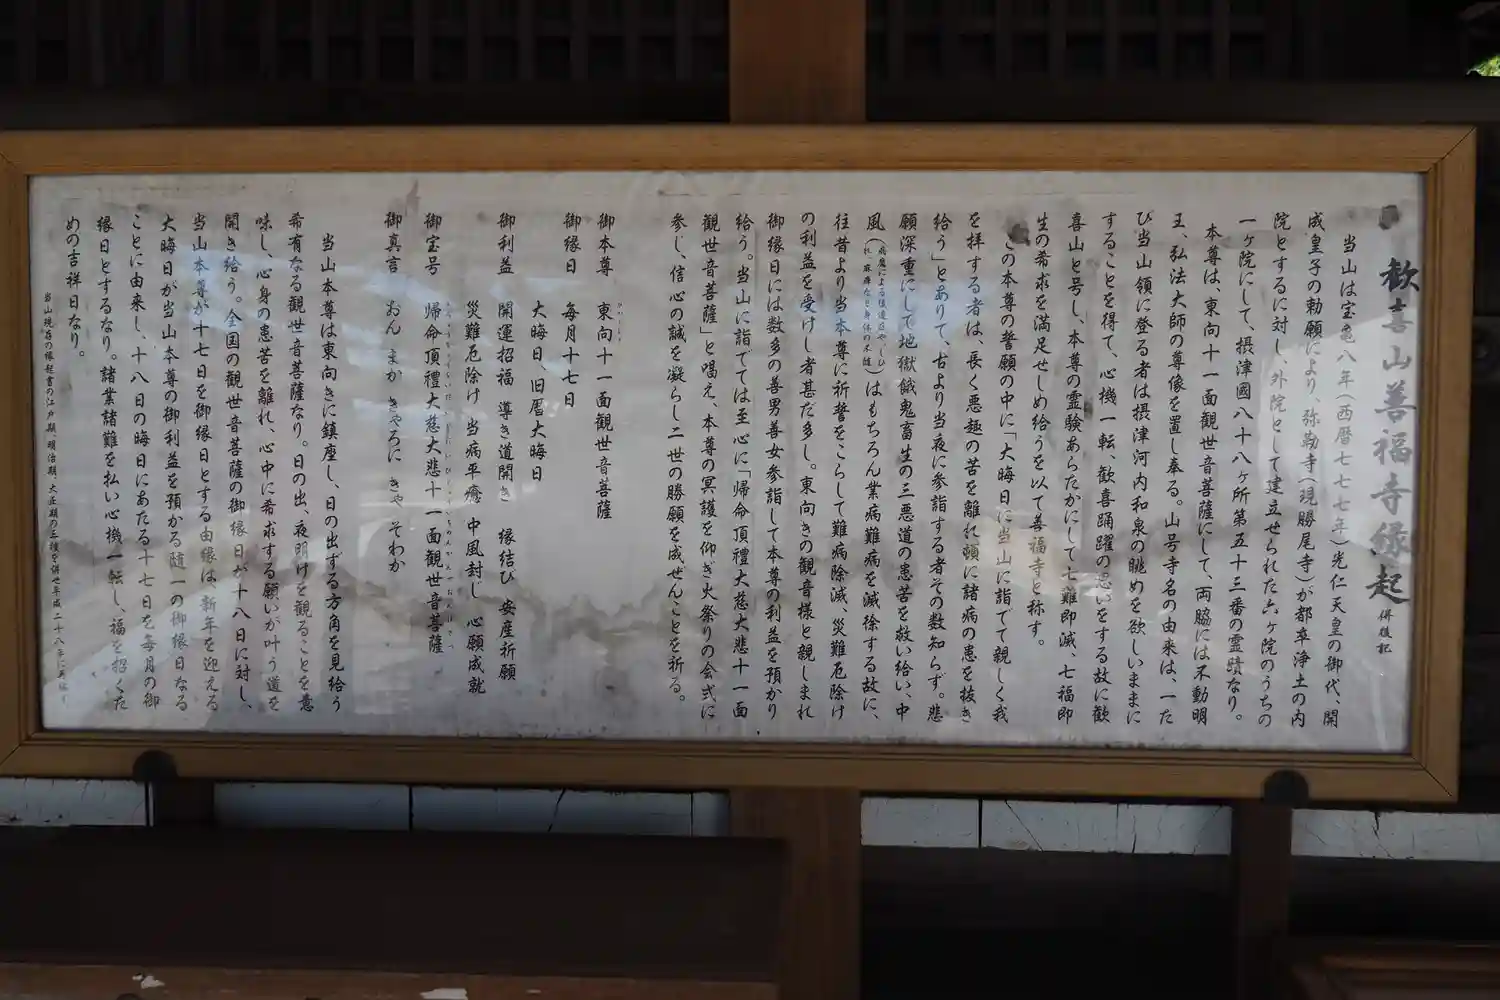 歓喜山善福寺縁起 併後記
当山は宝亀八年(西暦七七七年)光仁天皇の御代、開
成皇子の勅願により、弥勒寺(現勝尾寺)が都卒浄土の内
院とするに対し、外院として建立せられた六ヶ院のうちの
一ヶ院にして、摂津國八十八ヶ所第五十三番の霊蹟なり。
本尊は、東向十一面観世音菩薩にして、両脇には不動明
王、弘法大師の尊像を置し奉る。山号寺名の由来は、一た
び当山領に登る者は摂津河内和泉の眺めを欲しいままに
することを得て、心機一転、歓喜踊躍の思いをする故に歓
喜山と号し、本尊の霊験あらたかにして七難即滅、七福即
生の希求を満足せしめ給うを以て善福寺と称す。
この本尊の誓願の中に「大晦日に当山に詣でて親しく我
を拝する者は、長く悪趣の苦を離れ頓に諸病の患を抜き
給う」とありて、古より当夜に参詣する者その数知らず。悲
願深重にして地獄餓鬼畜生の三悪道の患苦を救い給い、中
風(病魔による後遺症や、しびれ、麻痺など身体の不随)はもちろん業病難病を滅除する故に、
往昔より当本尊に祈誓をこらして難病除滅、災難厄除け
の利益を受けし者甚だ多し。東向きの観音様と親しまれ
御縁日には数多の善男善女参詣して本尊の利益を預かり
給う。当山に詣でては至心に「帰命頂禮大慈大悲十一面
観世音菩薩」と唱え、本尊の冥護を仰ぎ火祭りの会式に
参じ、信心の誠を凝らし二世の勝願を成ぜんことを祈る。
御本尊 東向十一面観世音菩薩
御縁日 毎月十七日
大晦日、旧暦大晦日
御利益 開運招福 導き道開き 縁結び 安産祈願
災難厄除け 当病平癒 中風封じ 心願成就
御宝号 帰命頂禮大慈大悲十一面観世音菩薩
御真言 おん まか きゃろに きゃ そわか
当山本尊は東向きに鎮座し、日の出ずる方角を見給う
希有なる観世音菩薩なり。日の出、夜明けを観ることを意
味し、心身の患苦を離れ、心中に希求する願いが叶う道を
開き給う。全国の観世音菩薩の御縁日が十八日に対し、
当山本尊が十七日を御縁日とする由縁は、新年を迎える
大晦日が当山本尊の御利益を預かる随一の御縁日なる
ことに由来し、十八日の晦日にあたる十七日を毎月の御
縁日とするなり。諸業諸難を払い心機一転し、福を招くた
めの吉祥日なり。
当山現存の縁起書の江戸期、明治期、大正期の三種を併せ平成二十八年に再編す